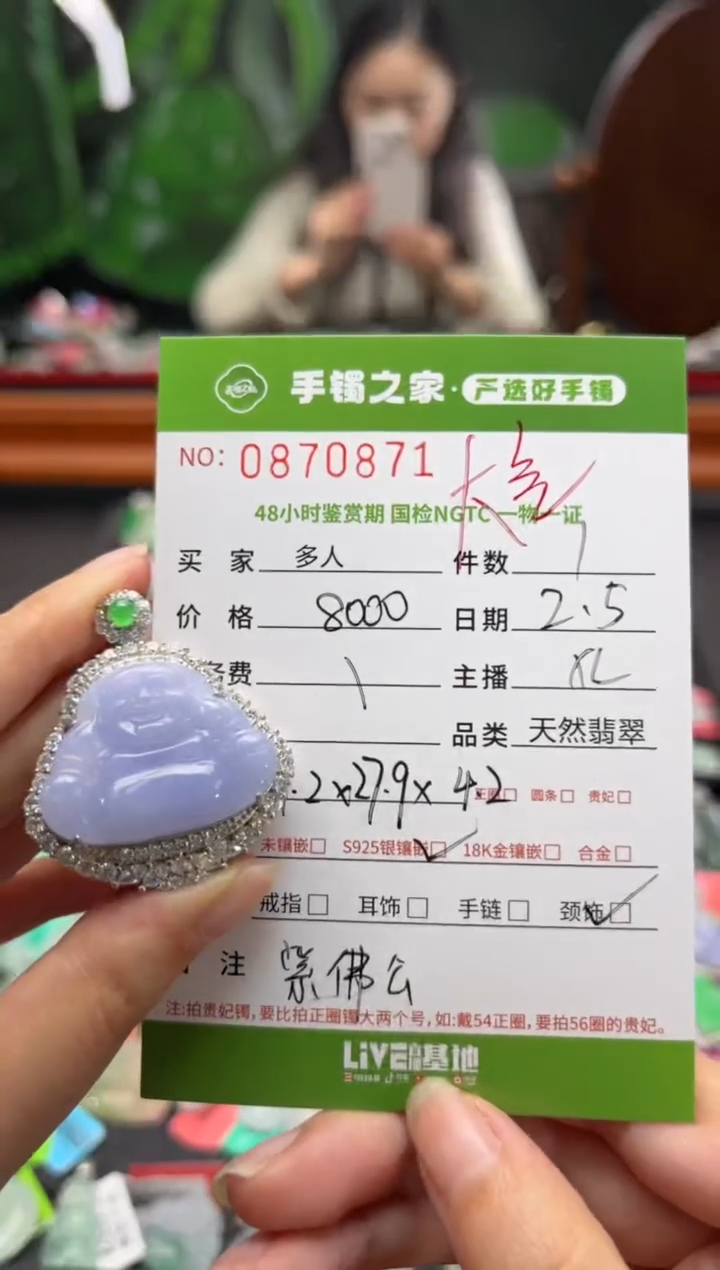 手镯之家·严选好手镯
NO: 0870871
48小时鉴赏期 国检NGTC 一物一证
买 家 多人 件数 1
价 格 8000 日期 2.5
费 \ 主播 XL
品类 天然翡翠
.2x27.9x 4.2 圆条□ 贵妃□
未镶嵌□ S925银镶嵌☑ 18K金镶嵌□ 合金□
戒指□ 耳饰□ 手链□ 颈饰☑
注 紫佛公
注:拍贵妃镯,要比拍正圈镯大两个号,如:戴54正圈,要拍56圈的贵妃。
LIVE 基地